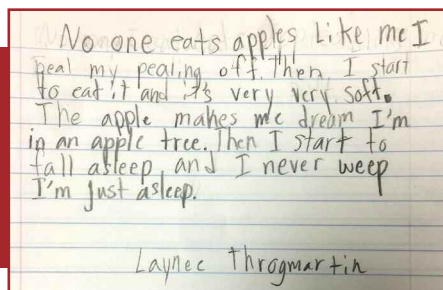 No one eats apples Like me I
Peal my pealing off. Then I start
to eat it and it's very very soft.
The apple makes me dream I'm
in an apple tree. Then I start to
fall asleep and I never weep
I'm just asleep.
Laynee Throgmartin